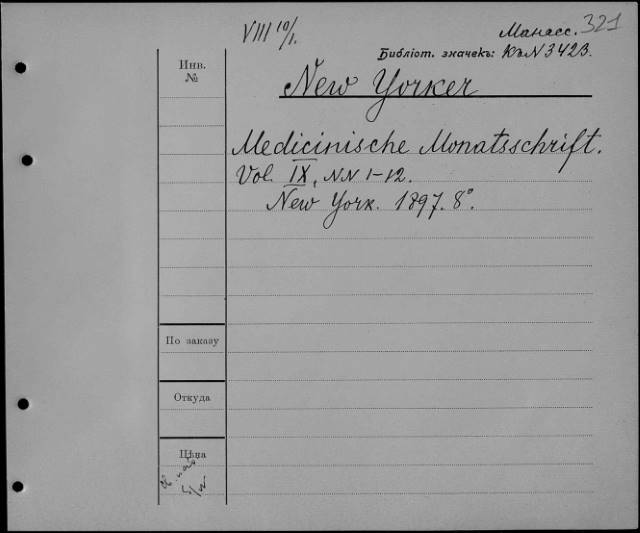 VIII 10/1.
Манасс. 321
Библіот. значекъ: Къ N 3423.
Инв.
№
New Yorker
Medicinische Monatsschrift.
Vol. IX, NN 1-12.
New York. 1897. 8°.
По заказу
Откуда
Цѣна